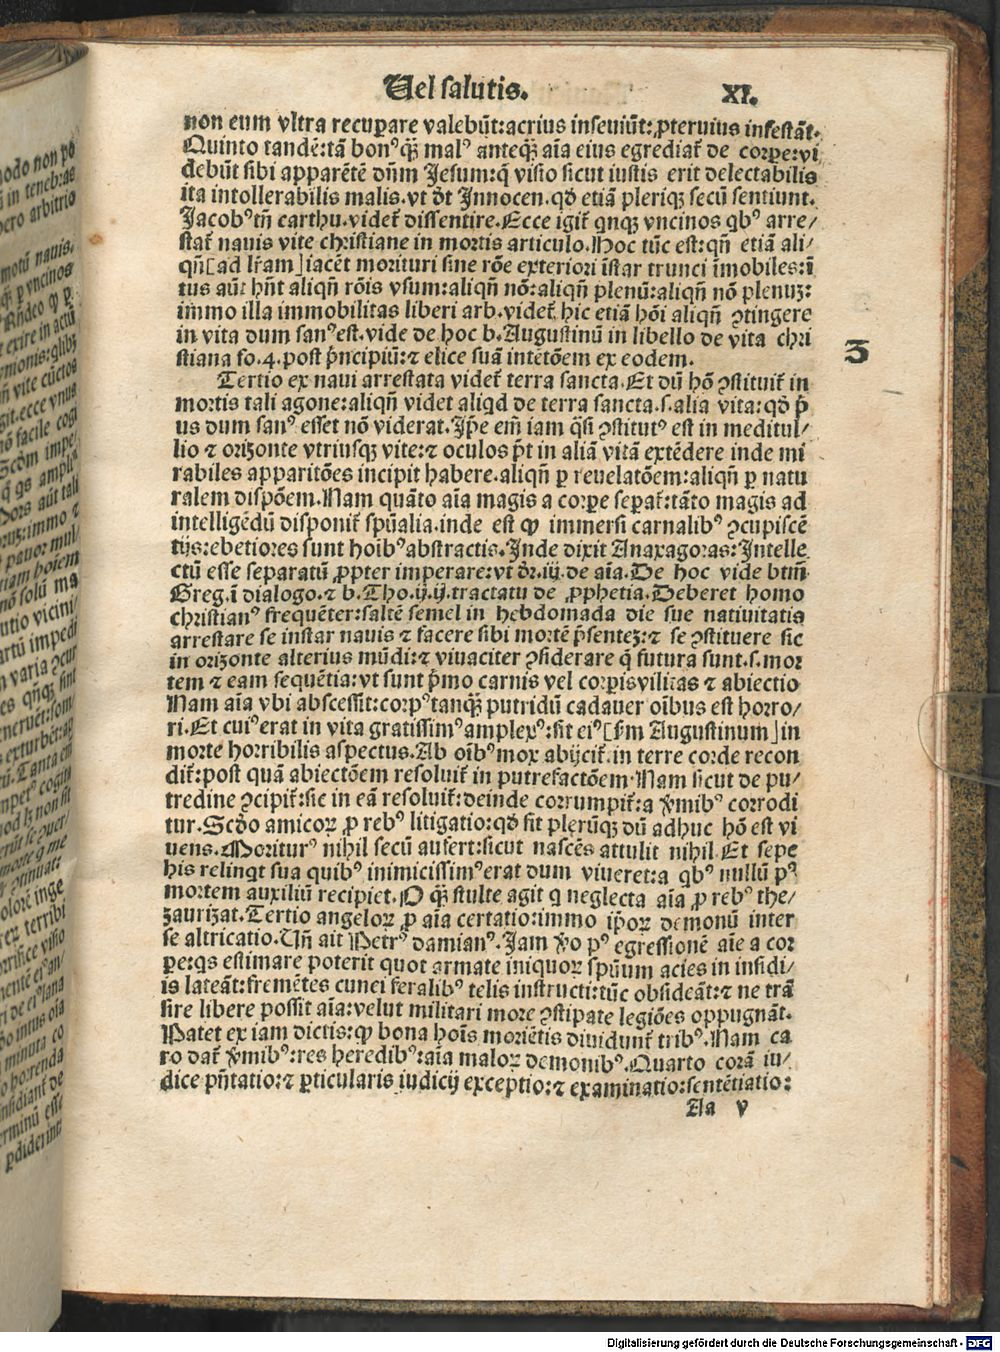 Uel salutis. XI.
non eum vltra recuꝑare valebūt: acrius inseuiūt: ꝓteruius infestāt.
Quinto tandē: tā bonꝰ qꝫ̄ malꝰ anteqꝫ̄ aīa eius egrediat̄ de corꝑe: vi
debūt sibi apparētē dn̄m Jesum: q̄ visio sicut iustis erit delectabilis
ita intollerabilis malis. vt dt̄ Innocen. qd̄ etiā pleriqꝫ secū sentiunt.
Jacobꝰ tn̄ carthu. videt̄ dissentire. Ecce igit̄ qnqꝫ vncinos qbꝰ arre/
stat̄ nauis vite christiane in mortis articulo. Hoc tūc est: qn̄ etiā ali/
qn̄ [ad lr̄am] iacēt morituri sine rōe exteriori īstar trunci īmobiles: ī
tus aūt hn̄t aliqn̄ rōis vsum: aliqn̄ nō: aliqn̄ plenū: aliqn̄ nō plenuꝫ:
immo illa immobilitas liberi arb. videt̄ hic etiā hōi aliqn̄ ꝯtingere
in vita dum sanꝰ est. vide de hoc b. Augustinū in libello de vita chri
stiana fo. 4. post p̄ncipiū: ⁊ elice suā intētōem ex eodem.
3
Tertio ex naui arrestata videt̄ terra sancta. Et dū hō ꝯstituit̄ in
mortis tali agone: aliqn̄ videt aliqd de terra sancta. s. alia vita: qd̄ p̄
us dum sanꝰ esset nō viderat. Ip̄e em̄ iam q̄si ꝯstitutꝰ est in meditul/
lio ⁊ orizonte vtriusqꝫ vite: ⁊ oculos p̄t in aliā vitā extēdere inde mi
rabiles apparitōes incipit habere. aliqn̄ ꝑ reuelatōem: aliqn̄ ꝑ natu
ralem dispōem. Nam quāto aīa magis a corꝑe seꝑat̄: tāto magis ad
intelligēdū disponit̄ spūalia. inde est ꝙ immersi carnalibꝰ ꝯcupiscē
tijs: ebetiores sunt hoībꝰ abstractis. Inde dixit Anaxagoras: Intelle
ctū esse separatū ꝓpter imperare: vt dr̄. iij. de aīa. De hoc vide btm̄
Greg. ī dialogo. ⁊ b. Tho. ij. ij. tractatu de ꝓphetia. Deberet homo
christianꝰ frequēter: saltē semel in hebdomada die sue natiuitatis
arrestare se instar nauis ⁊ facere sibi mortē p̄senteꝫ: ⁊ se ꝯstituere sic
in orizonte alterius mūdi: ⁊ viuaciter ꝯsiderare q̄ futura sunt. s. mor
tem ⁊ eam sequētia: vt sunt p̄mo carnis vel corꝑis vilitas ⁊ abiectio
Nam aīa vbi abscessit: corpꝰ tanqꝫ̄ putridū cadauer oībus est horro/
ri. Et cuiꝰ erat in vita gratissimꝰ amplexꝰ: fit eiꝰ [sm̄ Augustinum] in
morte horribilis aspectus. Ab oībꝰ mox abijcit̄. in terre corde recon
dit̄: post quā abiectōem resoluit̄ in putrefactōem. Nam sicut de pu/
tredine ꝯcipit̄: sic in eā resoluit̄: deinde corrumpit̄: a v̄mibꝰ corrodi
tur. Scd̄o amicoꝝ ꝓ rebꝰ litigatio: qd̄ fit plerūqꝫ dū adhuc hō est vi
uens. Moriturꝰ nihil secū aufert: sicut nascēs attulit nihil. Et sepe
his relinqt sua quibꝰ inimicissimꝰ erat dum viueret: a qbꝰ nullū pꝰ
mortem auxiliū recipiet. O qꝫ̄ stulte agit q neglecta aīa ꝓ rebꝰ the/
zaurizat. Tertio angeloꝝ ꝓ aīa certatio: immo ip̄oꝝ demonū inter
se altricatio. Un̄ ait Petrꝰ damianꝰ. Jam v̄o pꝰ egressionē aīe a cor
ꝑe: qs estimare poterit quot armate iniquoꝝ spūum acies in insidi/
is lateāt: fremētes cunei feralibꝰ telis instructi: tūc obsideāt: ⁊ ne trā
sire libere possit aīa: velut militari more ꝯstipate legiōes oppugnāt.
Patet ex iam dictis: ꝙ bona hoīs moriētis diuidunt̄ tribꝰ. Nam ca
ro dat̄ v̄mibꝰ: res heredibꝰ: aīa maloꝝ demonibꝰ. Quarto corā iu/
dice pn̄tatio: ⁊ ꝑticularis iudicij exceptio: ⁊ examinatio: sentētiatio:
Aa v
Digitalisierung gefördert durch die Deutsche Forschungsgemeinschaft - DFG